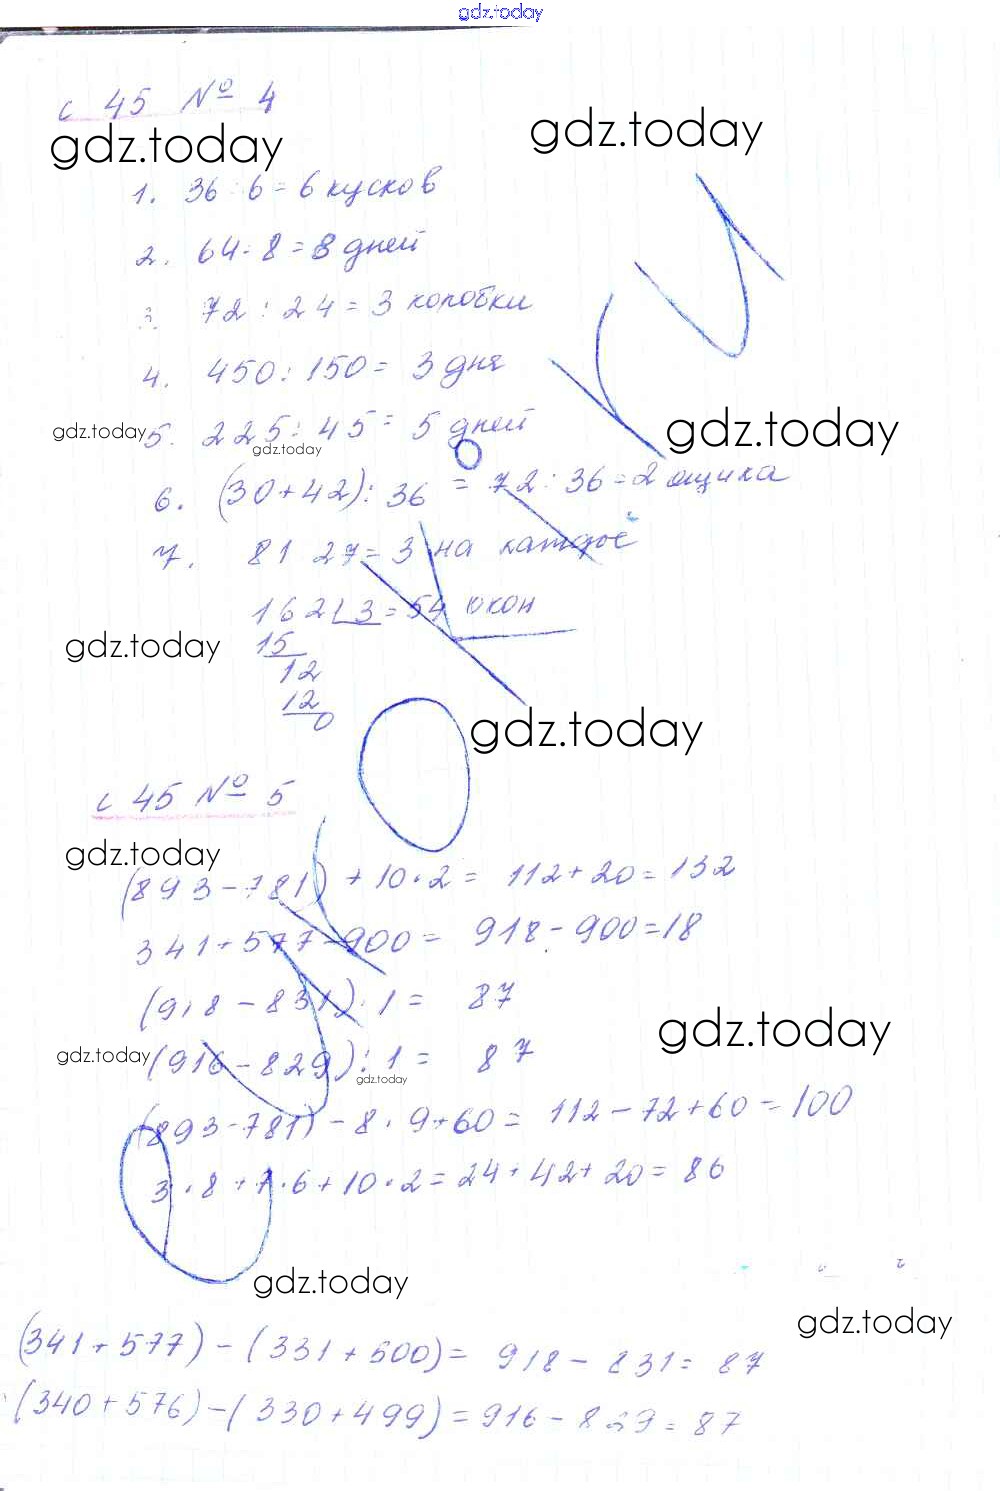 gdz.today
с 45 № 4
gdz.today gdz.today
1. 36 : 6 = 6 кусков
2. 64 : 8 = 8 дней
3. 72 : 24 = 3 коробки
4. 450 : 150 = 3 дня
gdz.today 5. 225 : 45 = 5 дней gdz.today
gdz.today
6. (30+42) : 36 = 72 : 36 = 2 ящика
7. 81 27 = 3 на каждое
162 3 = 54 окон
gdz.today 15
12
12
0
gdz.today
с 45 № 5
gdz.today
(893 - 781) + 10 · 2 = 112 + 20 = 132
341 + 577 - 900 = 918 - 900 = 18
(918 - 831) : 1 = 87
gdz.today
gdz.today (916 - 829) : 1 = 87
gdz.today
(893 - 781) - 8 · 9 + 60 = 112 - 72 + 60 = 100
3 · 8 + 7 · 6 + 10 · 2 = 24 + 42 + 20 = 86
gdz.today
gdz.today
(341 + 577) - (331 + 500) = 918 - 831 = 87
(340 + 576) - (330 + 499) = 916 - 829 = 87